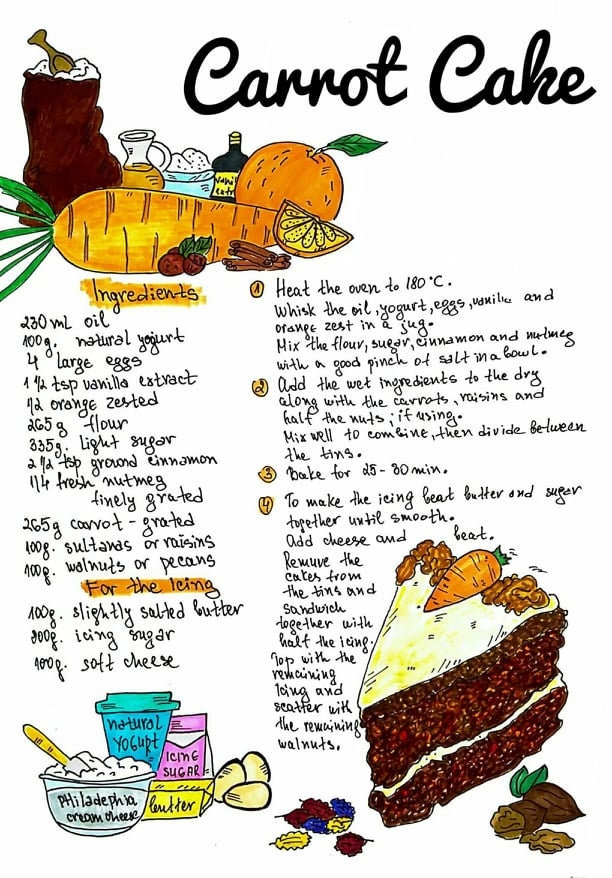 Carrot Cake
Vanil
extr
Ingredients
230 mL oil
100g. natural yogurt
4 large eggs
1 1/2 tsp vanilla extract
1/2 orange zested
265g flour
335g. light sugar
2 1/2 tsp ground cinnamon
1/4 fresh nutmeg
finely grated
265g carrot - grated
100g. sultanas or raisins
100g. walnuts or pecans
For the Icing
100g. slightly salted butter
200g. icing sugar
100g. soft cheese
1 Heat the oven to 180°C.
Whisk the oil, yogurt, eggs, vanilla and
orange zest in a jug.
Mix the flour, sugar, cinnamon and nutmeg
with a good pinch of salt in a bowl.
2 Add the wet ingredients to the dry
along with the carrots, raisins and
half the nuts, if using.
Mix well to combine, then divide between
the tins.
3 Bake for 25-30 min.
4 To make the icing beat butter and sugar
together until smooth.
Add cheese and beat.
Remuve the
cakes from
the tins and
sandwich
together with
half the icing.
Top with the
remaining
icing and
scatter with
the remaining
walnuts.
natural
yogurt
ICING
SUGAR
Philadephia
cream cheese
butter